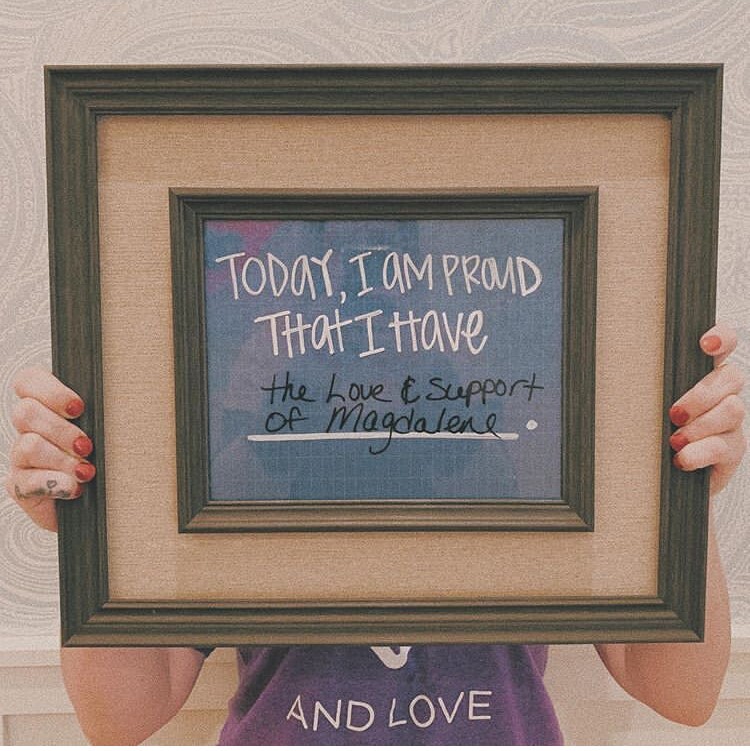 TODAY, I AM PROUD
THAT I HAVE
the Love & Support
of Magdalene.
AND LOVE